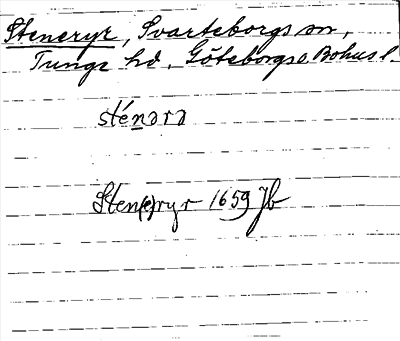 Steneryr, Svarteborgs sn,
Tunge hd, Göteborgs o Bohus l.
sténərə
Sten(e)ryr 1659 Jb